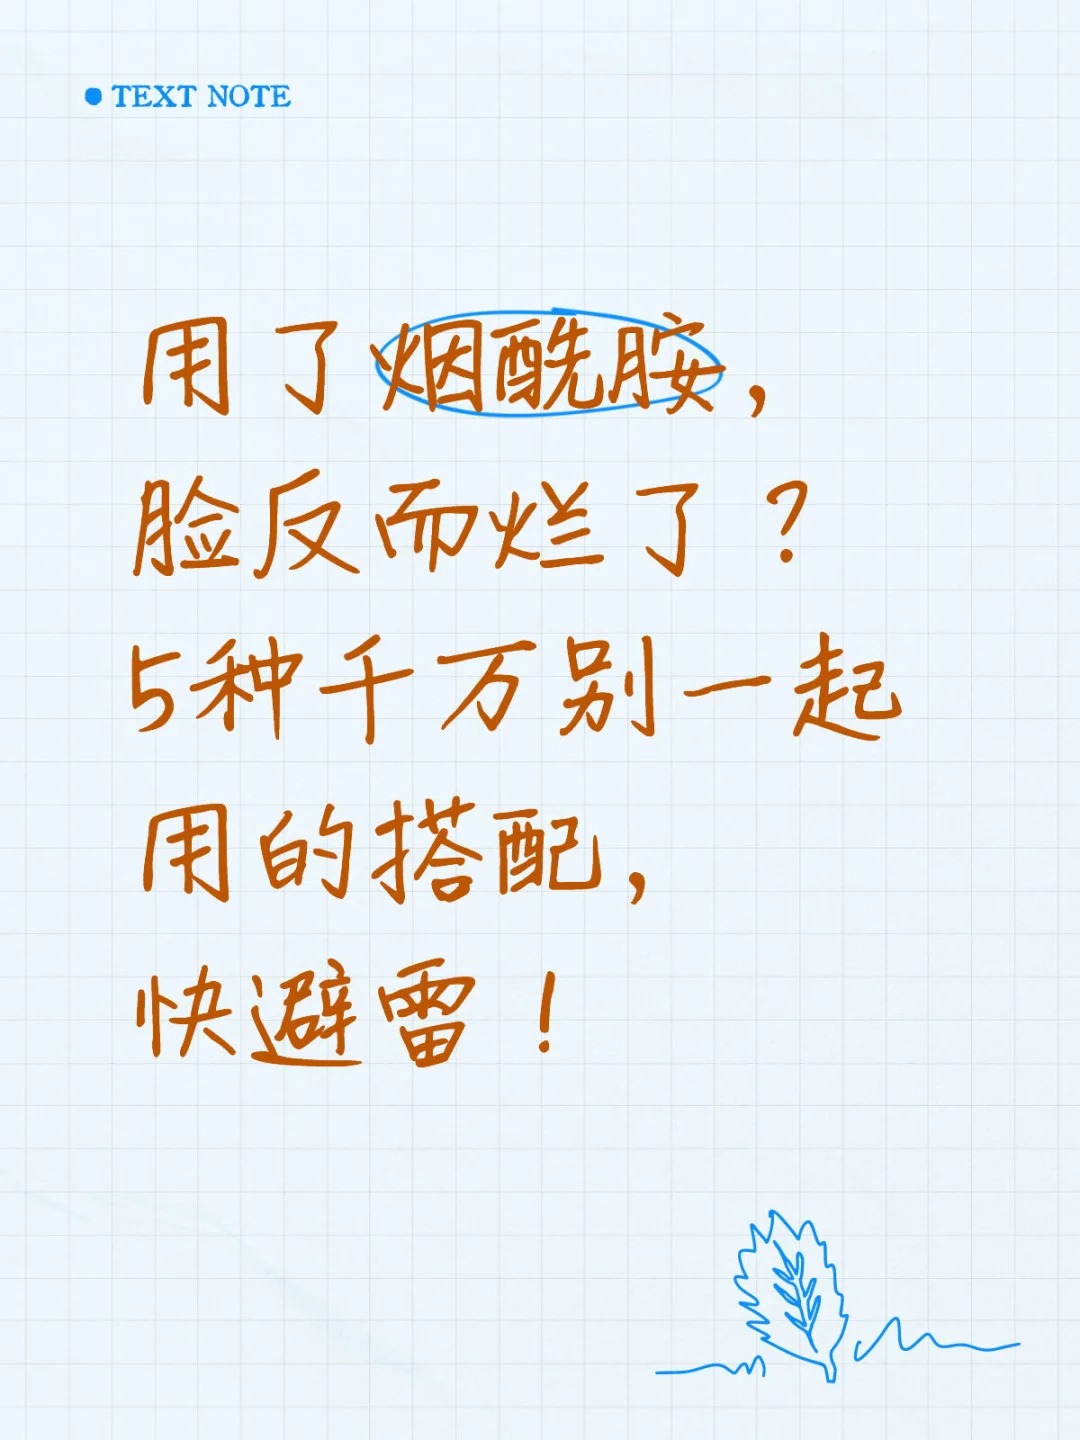 TEXT NOTE
用了烟酰胺，
脸反而烂了？
5种千万别一起
用的搭配，
快避雷！